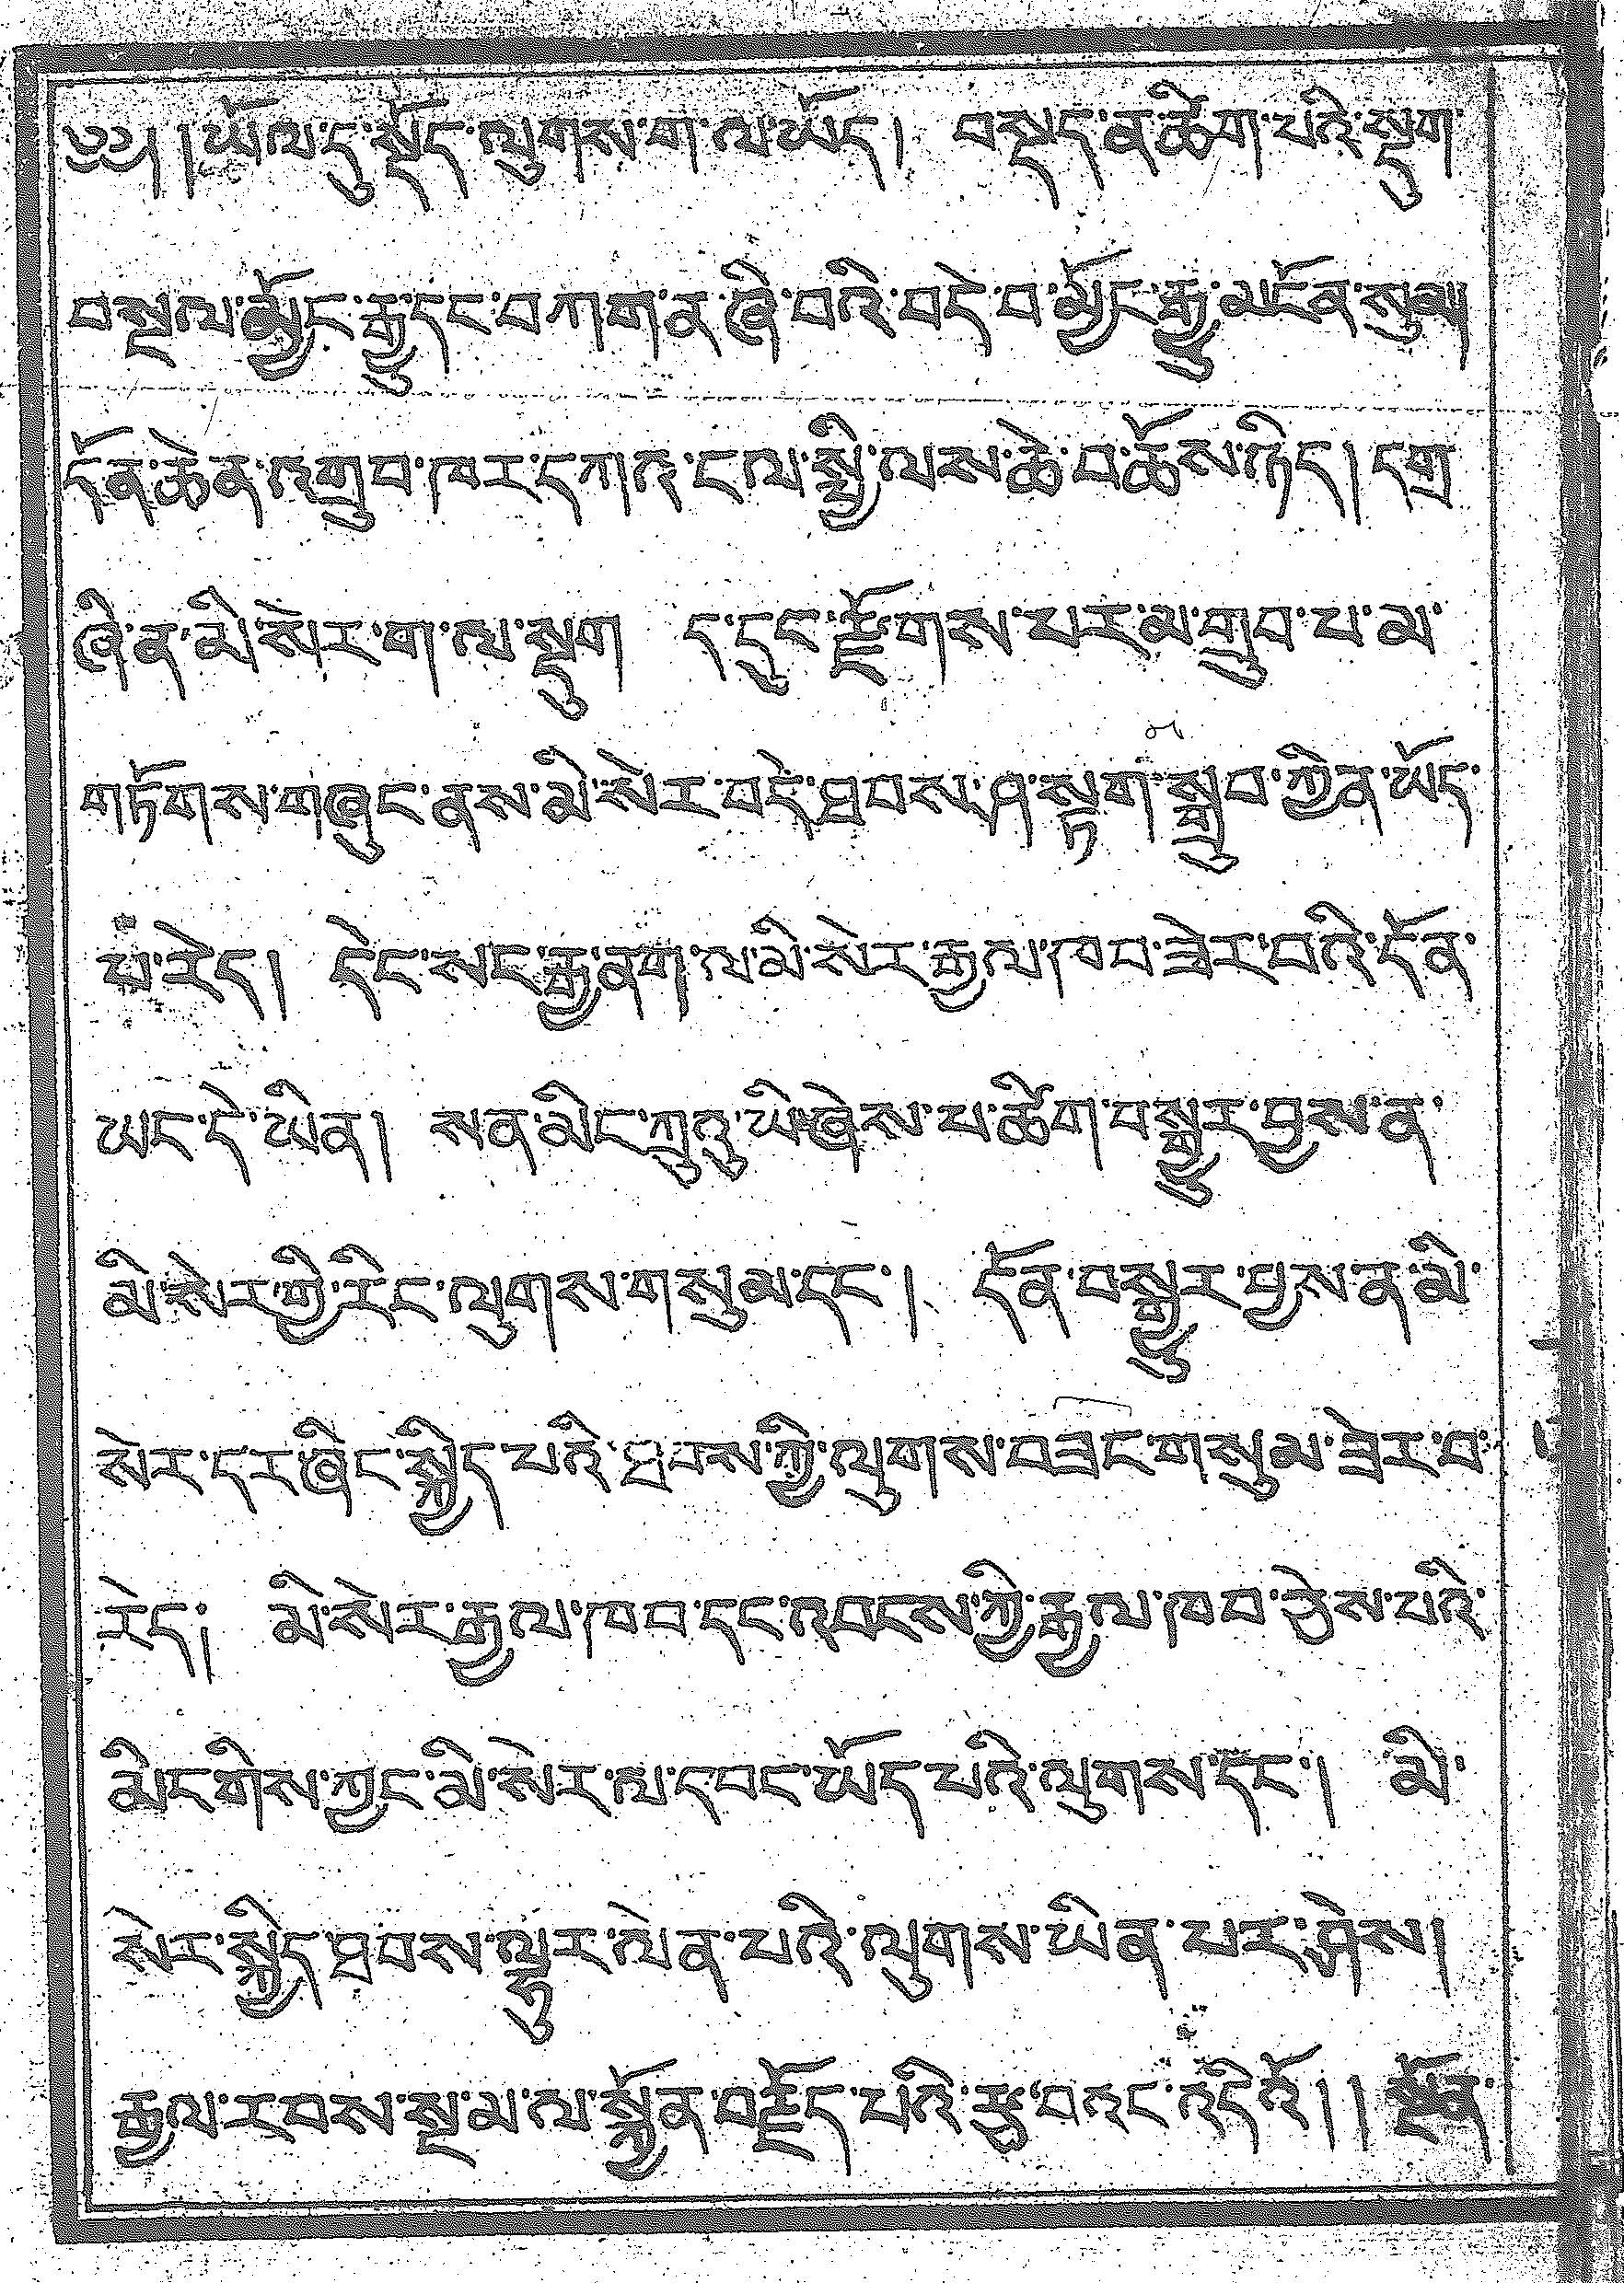 ༄༅། །ཡོལ་དུ་སྡོད་ལུགས་ག་ལ་ཡོད། བསྡད་ན་ཚོག་པའི་སྡུག་
བསྔལ་མྱོང་རྒྱུ་དང་བཀག་ན་ཞི་བའི་བདེ་བ་མྱོང་རྒྱུ་མངོན་སུམ།
དོན་ཆེན་འགྲུབ་ཁར་དཀའ་ངལ་སྤྱི་ལས་ཆེ་བ་ཆོས་ཉིད། དགྲ
ཞི་ན་མི་སེར་ག་ལ་སྡུག ད་དུང་རྫོགས་པར་མ་གྲུབ་པ་མ་
གཏོགས་གཞུང་ནས་མི་སེར་བདེ་ཐབས་ཤ་སྟག་སྒྲུབ་ཀྱིན་ཡོད་
པ་རེད། དེང་སང་རྒྱ་ནག་ལ་མི་སེར་རྒྱལ་ཁབ་ཟེར་བའི་དོན་
ཡང་དེ་ཡིན། སན་མིང་ཀྲུའུ་ཡི་ཞེས་པ་ཚིག་བསྒྱུར་བྱས་ན་
མི་སེར་གྱི་རིང་ལུགས་གསུམ་དང་། དོན་བསྒྱུར་བྱས་ན་མི་
སེར་དར་ཞིང་སྐྱིད་པའི་ཐབས་ཀྱི་ལུགས་བཟང་གསུམ་ཟེར་བ་
རེད། མི་སེར་རྒྱལ་ཁབ་དང་འབངས་ཀྱི་རྒྱལ་ཁབ་ཅེས་པའི་
མིང་གིས་ཀྱང་མི་སེར་ལ་དབང་ཡོད་པའི་ལུགས་དང་། མི་
སེར་སྐྱིད་ཐབས་ལྷུར་ལེན་པའི་ལུགས་ཡིན་པར་ཤེས།
རྒྱལ་རབས་སྔ་མ་ལ་སྐྱོན་བརྗོད་པའི་རྩ་བའང་འདིའོ། །